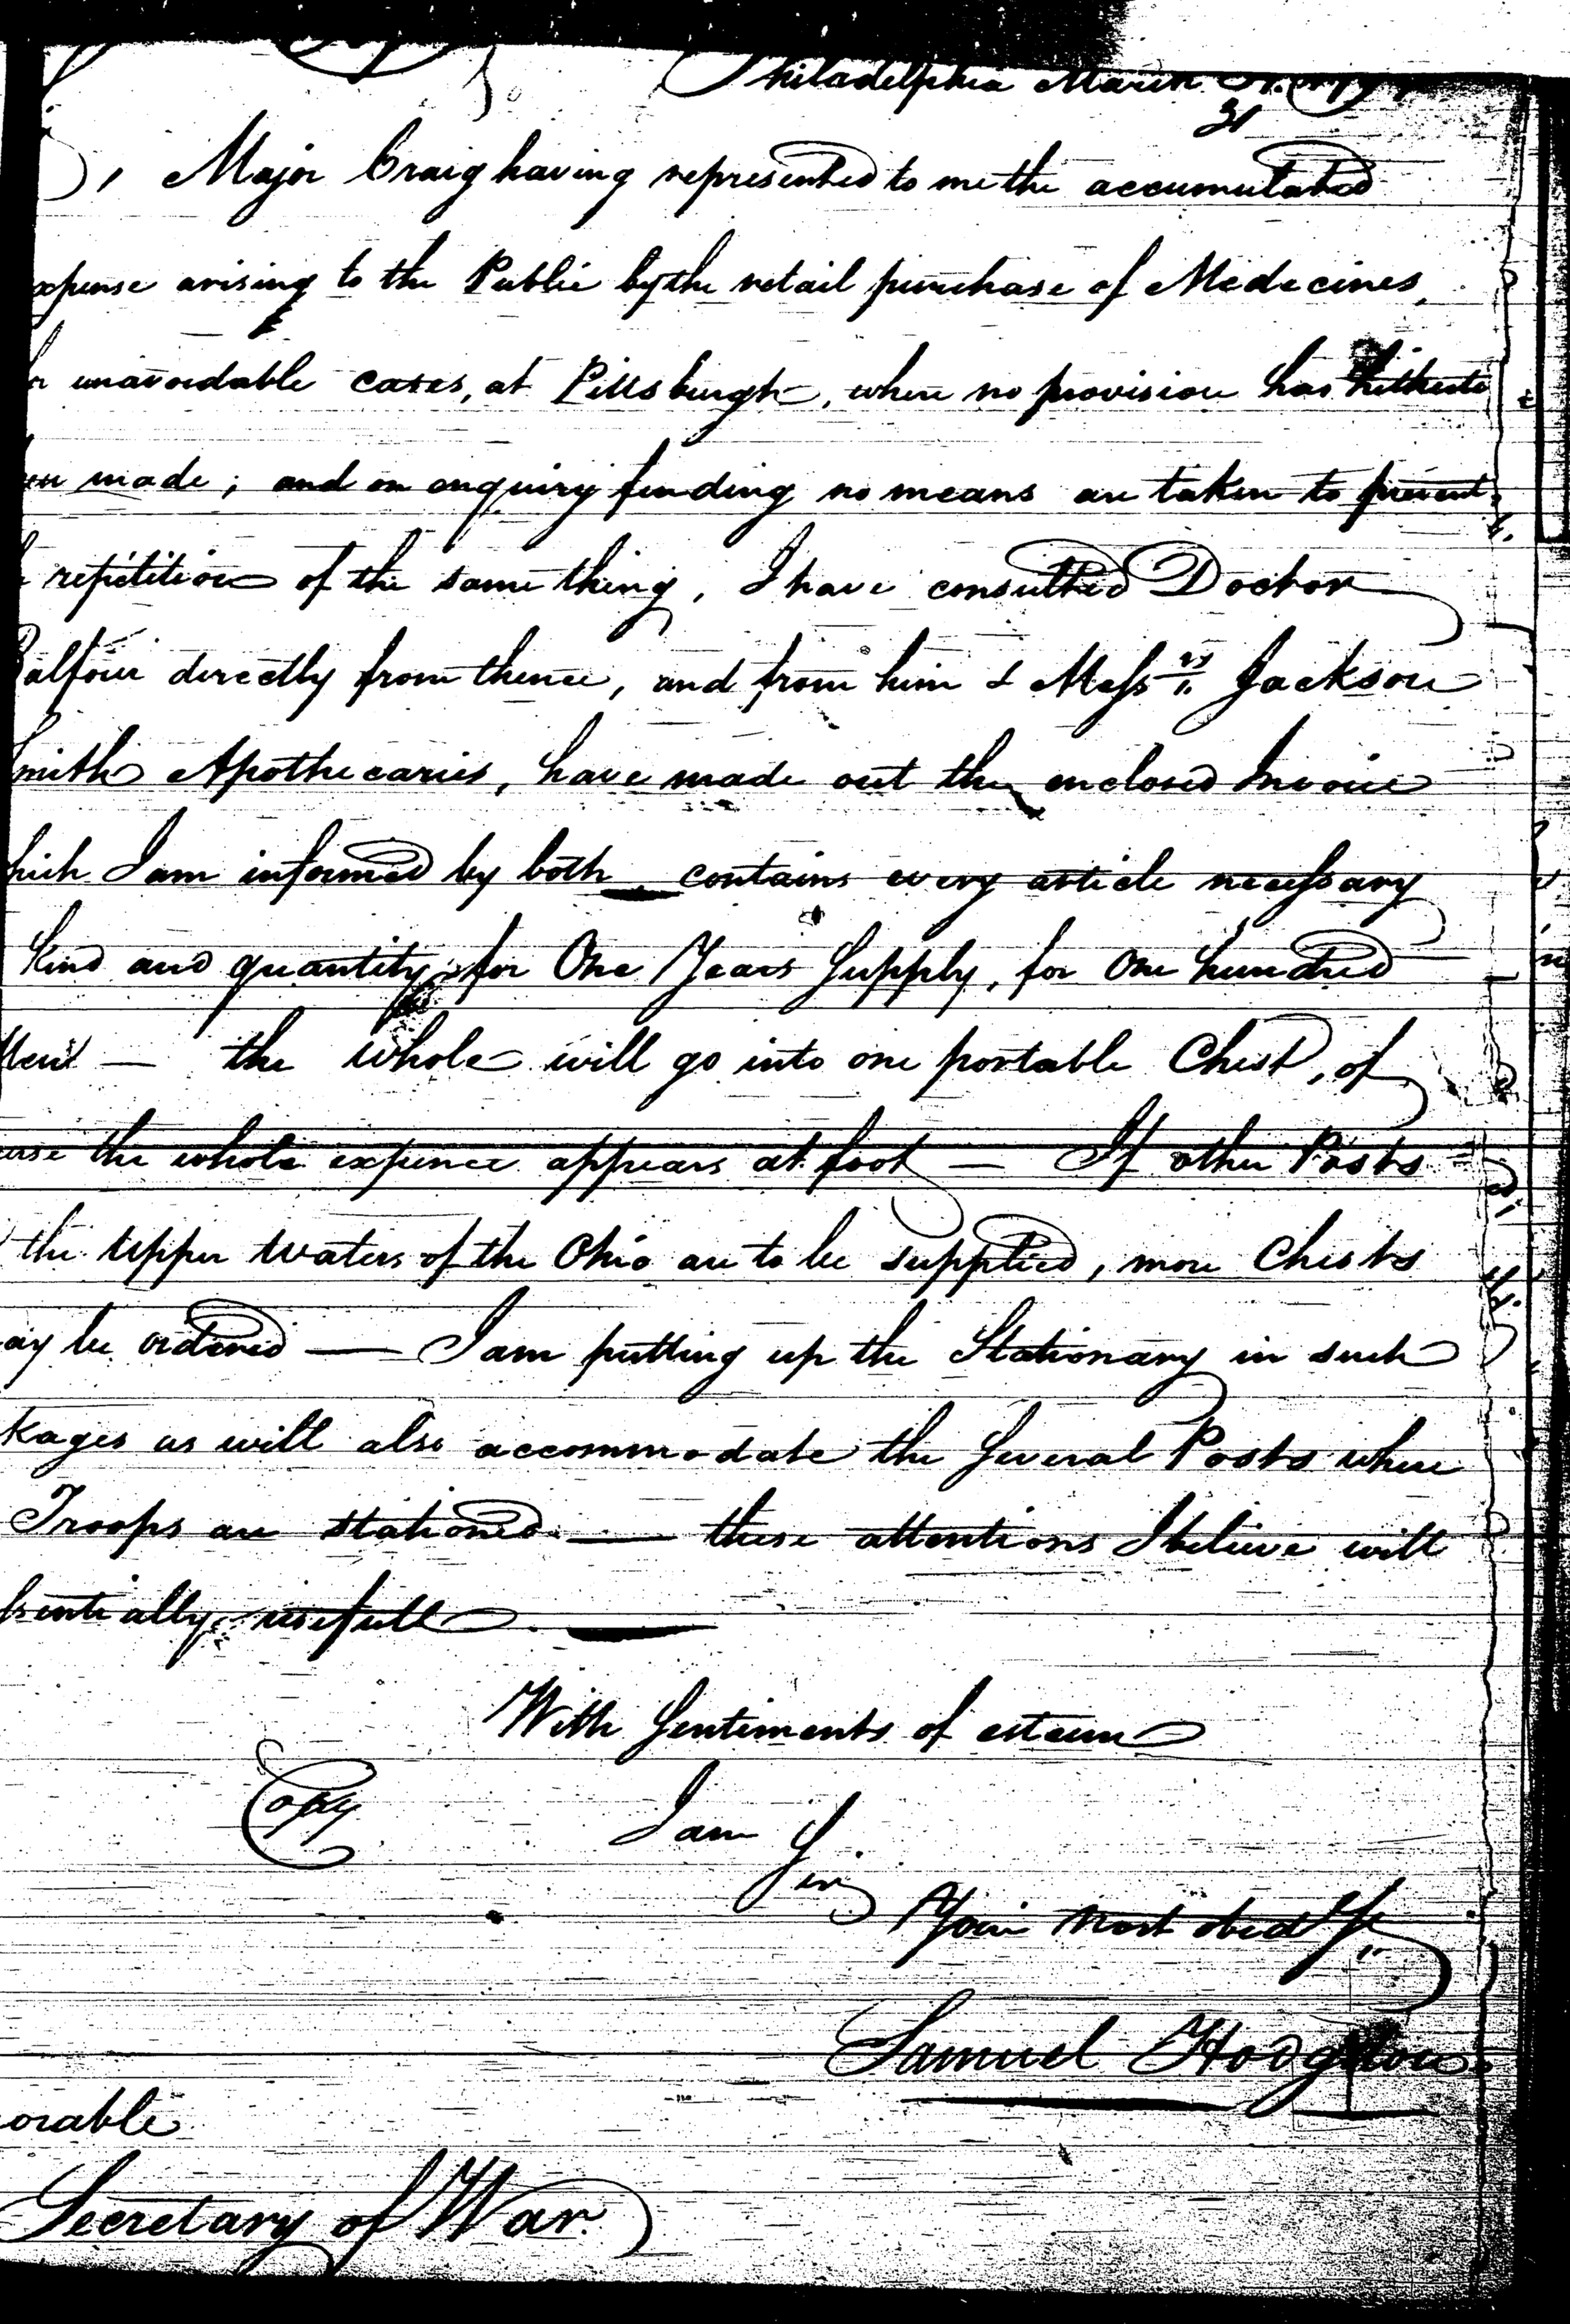 Philadelphia March 31.
31
Major Craig having represented to me the accumulated
xpense arising to the Public by the retail purchase of Medecines,
unavoidable cases, at Pittsburgh, where no provision has hitherto
en made; and on enquiry finding no means are taken to prevent
repetition of the same thing, I have consulted Doctor
Balfour directly from thence, and from him & Mess.rs Jackson
Smith Apothecaries, have made out the enclosed Invoice
hich I am informed by both contains every article necessary
Kind and quantity for One Years Supply, for One hundred
Men — the whole will go into one portable Chest, of
urse the whole expence appears at foot — If other Posts
the Upper Waters of the Ohio are to be supplied, more Chests
ay be ordered — I am putting up the Stationary in such
kages as will also accommodate the Several Posts where
Troops are stationed — these attentions I believe will
sentially usefull
With Sentiments of esteem
Copy
I am
Sir
Your most obed.t
Samuel Hodgdon
orable
Secretary of War.